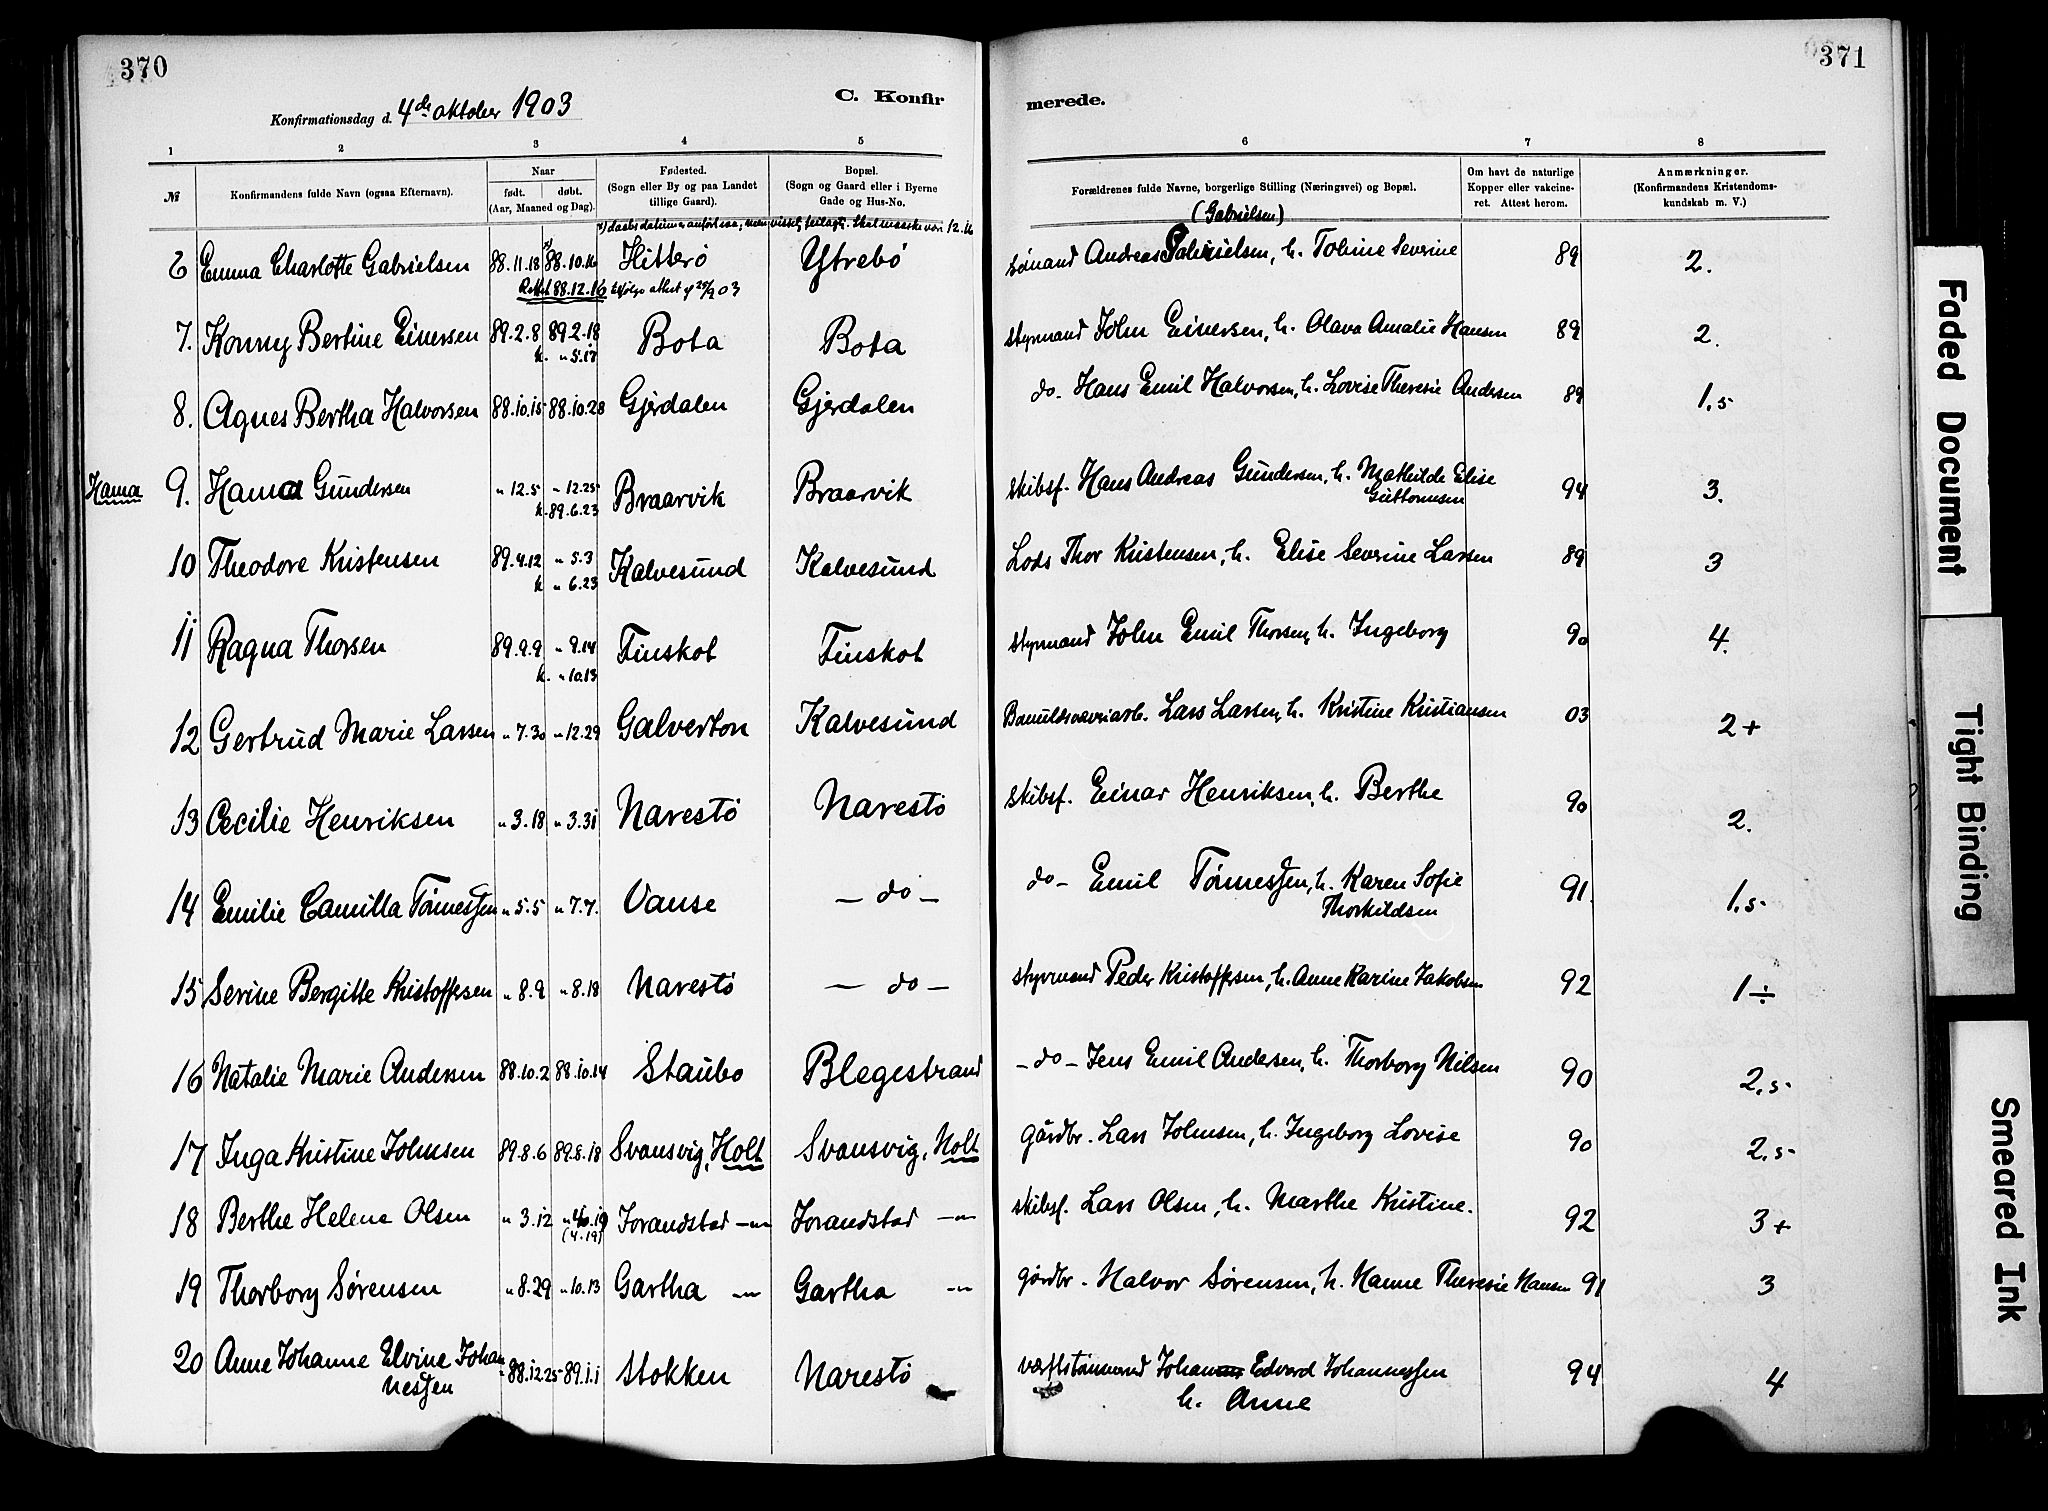 370
Konfirmationsdag d. 4de oktober 1903
C. Konfir
merede.
371
1 2 3 4 5 6 7 8
№ Konfirmandens fulde Navn (ogsaa Efternavn). Naar født. døbt. (Aar, Maaned og Dag). Fødested. (Sogn eller By og paa Landet tillige Gaard). Bopæl. (Sogn og Gaard eller i Byerne Gade og Hus-No. Forældrenes fulde Navne, borgerlige Stilling (Næringsvei) og Bopæl. Om havt de naturlige Kopper eller vakcineret. Attest herom. Anmærkninger. (Konfirmandens Kristendomskundskab m. V.)
(Gabrielsen)
6 Emma Charlotte Gabrielsen 88.11.18 88.10.16 Hitterø Ytrebø Sömand Andreas Gabrielsen, h. Tobine Severine 89 2.
Rettet 88.12.16 ifølge attest af 29/9 03
7. Konny Bertine Einersen 89.2.8 89.2.18 Bota Bota Styrmand John Einersen, h. Olava Amalie Hansen 89 2.
k. " 5.17
8. Agnes Bertha Halvorsen 88.10.15 88.10.28 Gjerdalen Gjerdalen do- Hans Emil Halvorsen, h. Lovise Theresie Andersen 89 1.5
Hanna 9. Hanna Gundersen " 12.5 " 12.25 Braarvik Braarvik Skibsf. Hans Andreas Gundersen, h. Mathilde Elise Guttormsen 94 3.
k. 89.6.23
10 Theodore Kristensen 89.4.12 " 5.3 Kalvesund Kalvesund Lods Thor Kristensen, h. Elise Severine Larsen 89 3
k " 6.23
11 Ragna Thorsen 89.9.9 " 9.14 Finskot Finskot Styrmand John Emil Thorsen, h. Ingeborg 90 4.
k. " 10.13
12 Gertrud Marie Larsen " 7.30 " 12.29 Galverton Kalvesund Lars Larsen, h. Kristine Kristiansen 03 2+
13 Cecilie Henriksen " 3.18 " 3.31 Narestö Narestö Skibsf. Einar Henriksen, h. Berthe 90 2.
14 Emilie Camilla Tönnessen " 5.5 " 7.7. Vanse — do — do- Emil Tönnessen, h. Karen Sofie Thorkildsen 91. 1.5
15 Serine Bergitte Kristoffersen " 8.9 " 8.18 Narestö — do — Styrmand Peder Kristoffersen, h. Anne Karine Jakobsen 92 1÷
16 Natalie Marie Andersen 88.10.2 88.10.14 Staubo Blegestrand - do - Jens Emil Andersen, h. Thorborg Nilsen 90 2.5
17 Inga Kristine Johnsen 89.8.6 89.8.18 Svansvig, Holt Svansvig, Holt gårdbr. Lars Johnsen, h. Ingeborg Lovise 90 2.5
18 Berthe Helene Olsen " 3.12 (4.19) Jorandstad —"— Jorandstad —"— Skibsf. Lars Olsen, h. Marthe Kristine. 92 3+
19 Thorborg Sørensen " 8.29 " 10.13 Gartha —"— Gartha —"— gårdbr. Halvor Sørensen, h. Hanne Theresie Hansen 91 3
20 Anne Johanne Elvine Johannessen 88.12.25 89.1.1 Stokken Narestö Johan Edvard Johannessen 94 4
h. Anne
Faded Document
Tight Binding
Smeared Ink